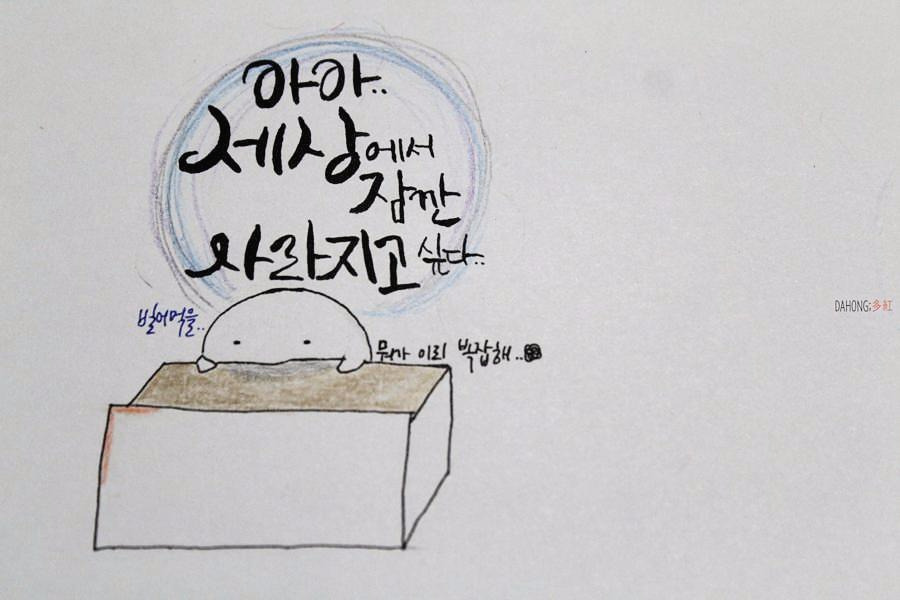 아아..
세상에서
잠깐
사라지고 싶다..
벌어먹을..
뭐가 이리 복잡해..
DAHONG;多紅